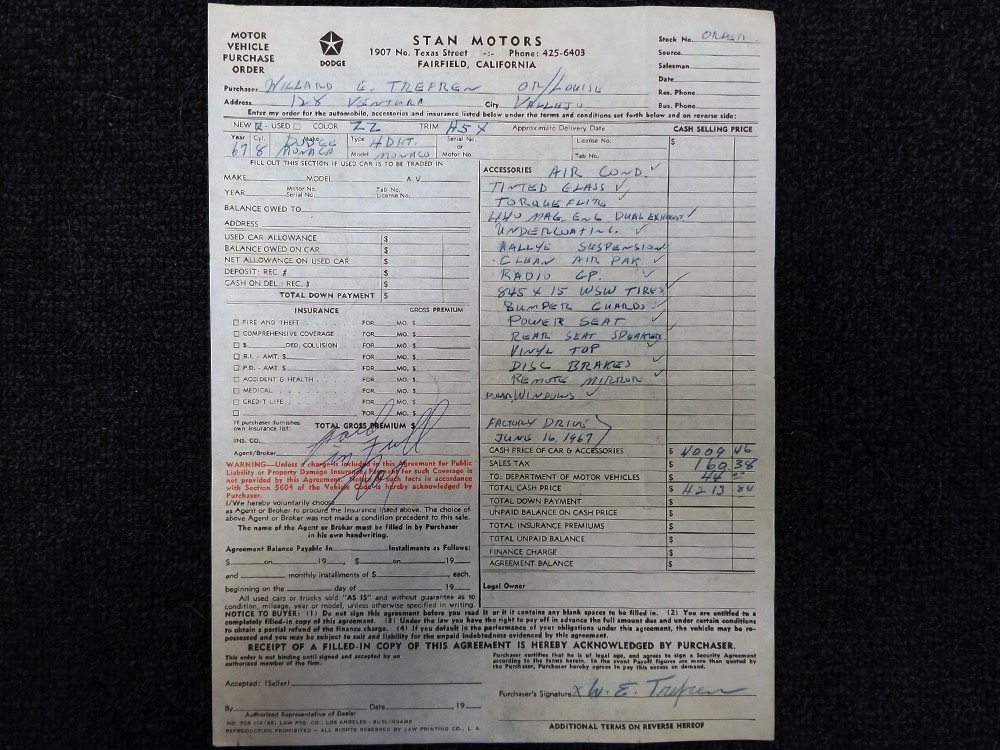 MOTOR
VEHICLE
PURCHASE
ORDER
DODGE
STAN MOTORS
1907 No. Texas Street -:- Phone: 425-6403
FAIRFIELD, CALIFORNIA
Stock No. ORDER
Source
Salesman
Date
Res. Phone
Bus. Phone
Purchaser WILLARD E. TREFREN OR/LOUISE
Address 128 VENTURA City VALLEJO
Enter my order for the automobile, accessories and insurance listed below under the terms and conditions set forth below and on reverse side:
NEW - USED COLOR ZZ TRIM H5X Approximate Delivery Date CASH SELLING PRICE
Year 67 Cyl. 8 Make DODGE MONACA Type 4DHT. Model MONACO Serial No. or Motor No. License No. Tab No. $
FILL OUT THIS SECTION IF USED CAR IS TO BE TRADED IN
MAKE MODEL A.V.
YEAR Motor No. Serial No. Tab No. License No.
BALANCE OWED TO
ADDRESS
USED CAR ALLOWANCE $
BALANCE OWED ON CAR $
NET ALLOWANCE ON USED CAR $
DEPOSIT: REC. # $
CASH ON DEL.: REC. # $
TOTAL DOWN PAYMENT $
INSURANCE GROSS PREMIUM
FIRE AND THEFT FOR MO. $
COMPREHENSIVE COVERAGE FOR MO. $
$ DED. COLLISION FOR MO. $
B.I. - AMT. $ FOR MO. $
P.D. - AMT. $ FOR MO. $
ACCIDENT & HEALTH FOR MO. $
MEDICAL FOR MO. $
CREDIT LIFE FOR MO. $
FOR MO. $
If purchaser furnishes own insurance list: TOTAL GROSS PREMIUM $
INS. CO.
Agent/Broker
paid
in Full
WARNING—Unless a charge is included in this agreement for Public
Liability or Property Damage Insurance, Payment for such Coverage is
not provided by this Agreement. Notice of such facts in accordance
with Section 5604 of the Vehicle Code is hereby acknowledged by
Purchaser.
I/We hereby voluntarily choose
as Agent or Broker to procure the Insurance listed above. The choice of
above Agent or Broker was not made a condition precedent to this sale.
The name of the Agent or Broker must be filled in by Purchaser
in his own handwriting.
Agreement Balance Payable In Installments as Follows:
$ on 19 , $ on 19
and monthly installments of $ each,
beginning on the day of 19
All used cars or trucks sold "AS IS" and without guarantee as to
condition, mileage, year or model, unless otherwise specified in writing
ACCESSORIES AIR COND. ✓
TINTED GLASS ✓
TORQUEFLITE
440 MAG. ENG DUAL EXHAUST ✓
UNDERCOATING. ✓
RALLYE SUSPENSION
CLEAN AIR PAK ✓
RADIO GP. ✓
845 X 15 WSW TIRES ✓
BUMPER GUARDS ✓
POWER SEAT ✓
REAR SEAT SPEAKER ✓
VINYL TOP ✓
DISC BRAKES ✓
REMOTE MIRROR ✓
POWER WINDOWS ✓
FACTORY DRIVE
JUNE 16, 1967
CASH PRICE OF CAR & ACCESSORIES $ 4009 46
SALES TAX $ 160 38
TO: DEPARTMENT OF MOTOR VEHICLES $ 44
TOTAL CASH PRICE $ 4213 84
TOTAL DOWN PAYMENT $
UNPAID BALANCE ON CASH PRICE $
TOTAL INSURANCE PREMIUMS $
TOTAL UNPAID BALANCE $
FINANCE CHARGE $
AGREEMENT BALANCE $
Legal Owner
NOTICE TO BUYER: (1) Do not sign this agreement before you read it or if it contains any blank spaces to be filled in. (2) You are entitled to a
completely filled-in copy of this agreement. (3) Under the law you have the right to pay off in advance the full amount due and under certain conditions
to obtain a partial refund of the finance charge. (4) If you default in the performance of your obligations under this agreement, the vehicle may be re-
possessed and you may be subject to suit and liability for the unpaid indebtedness evidenced by this agreement.
RECEIPT OF A FILLED-IN COPY OF THIS AGREEMENT IS HEREBY ACKNOWLEDGED BY PURCHASER.
This order is not binding until signed and accepted by an
authorized member of the firm.
Purchaser certifies that he is of legal age, and agrees to sign a Security Agreement
according to the terms herein. In the event Payoff figures are more than quoted by
the Purchaser, Purchaser hereby agrees to pay this excess on demand.
Accepted: (Seller)
Purchaser's Signature X W. E. Trefren
By Date , 19
Authorized Representative of Dealer
NO. 709 (10/66) LAW PTG. CO., LOS ANGELES - BURLINGAME
REPRODUCTION PROHIBITED — ALL RIGHTS RESERVED BY LAW PRINTING CO., L. A.
ADDITIONAL TERMS ON REVERSE HEREOF